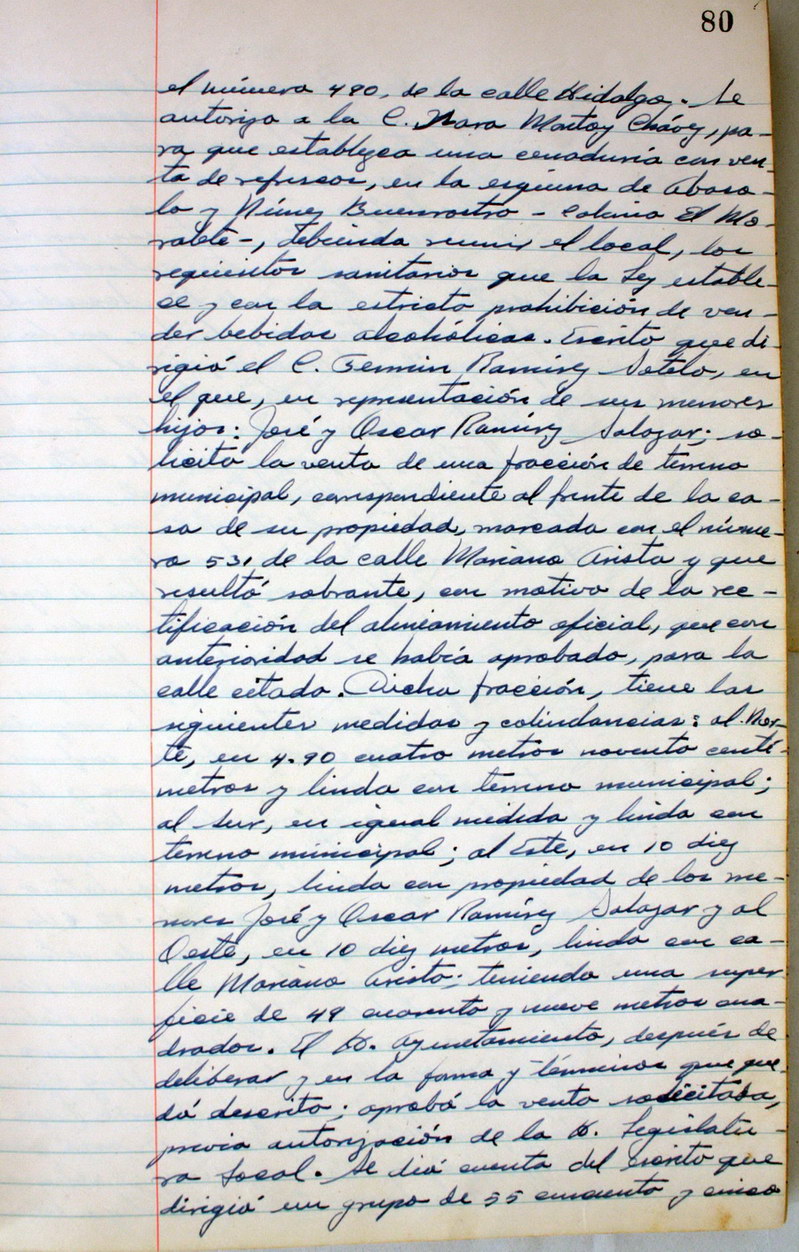 80
el número 490, de la calle Hidalgo. Se
autoriza a la C. Sara Montoy Chávez, pa-
ra que establezca una cenaduría con ven-
ta de refrescos, en la esquina de Abaso-
lo y Núñez Buenrostro - Colonia El Mo-
ralete-, debiendo reunir el local, los
requisitos sanitarios que la Ley estable-
ce y con la estricta prohibición de ven-
der bebidas alcohólicas. Escrito que di-
rigió el C. Fermín Ramírez Sotelo, en
el que, en representación de sus menores
hijos: José y Oscar Ramírez Salazar; so-
licita la venta de una fracción de terreno
municipal, correspondiente al frente de la ca-
sa de su propiedad, marcada con el núme-
ro 531 de la calle Mariano Arista y que
resultó sobrante, con motivo de la rec-
tificación del alineamiento oficial, que con
anterioridad se había aprobado, para la
calle citada. Dicha fracción, tiene las
siguientes medidas y colindancias: al Nor-
te, en 4.90 cuatro metros noventa centí-
metros y linda con terreno municipal;
al Sur, en igual medida y linda con
terreno municipal; al Este, en 10 diez
metros, linda con propiedad de los me-
nores José y Oscar Ramírez Salazar y al
Oeste, en 10 diez metros, linda con ca-
lle Mariano Arista; teniendo una super
ficie de 49 cuarenta y nueve metros cua-
drados. El H. Ayuntamiento, después de
deliberar y en la forma y términos que que-
dó descrito; aprobó la venta solicitada,
previa autorización de la H. Legislatu-
ra Local. Se dió cuenta del escrito que
dirigió un grupo de 55 cincuenta y cinco